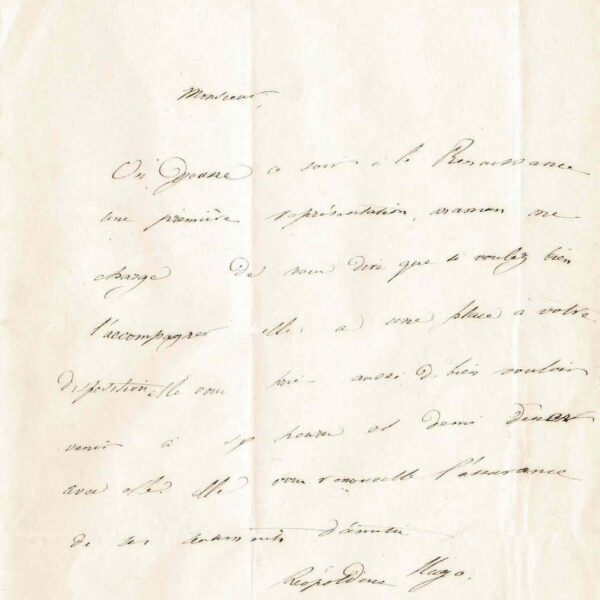 Monsieur,
On donne ce soir à la Renaissance
une première représentation, maman me
charge de vous dire que si voulez bien
l'accompagner elle a une place à votre
disposition elle vous prie aussi de bien vouloir
venir à heures et demi diner
avec elle. elle vous renouvelle l'assurance
de ses d'amitié
Léopoldine Hugo.